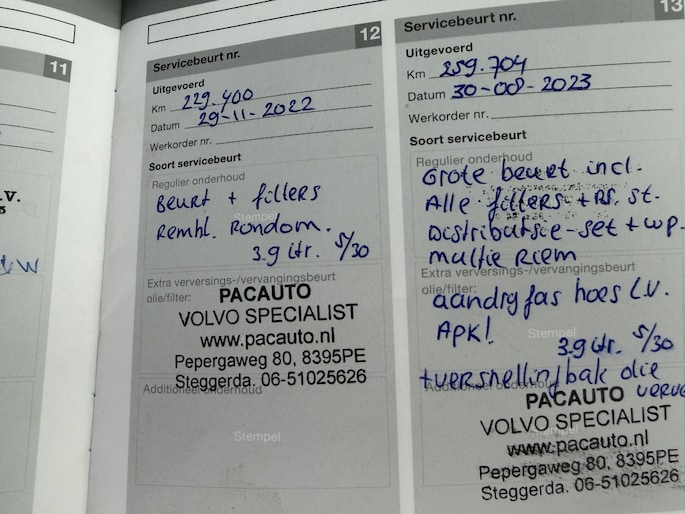 11
.V.
W
12
Servicebeurt nr.
Uitgevoerd
Km 229.400
Datum 29-11-2022
Werkorder nr.
Soort servicebeurt
Regulier onderhoud
Beurt + fillers
Stempel
Rembl. Rondom.
3.9 Ltr. 5/30
Extra verversings-/vervangingsbeurt
olie/filter:
PACAUTO
VOLVO SPECIALIST
www.pacauto.nl
Pepergaweg 80, 8395PE
Steggerda. 06-51025626
Additioneel onderhoud
Stempel
13
Servicebeurt nr.
Uitgevoerd
Km 259.704
Datum 30-08-2023
Werkorder nr.
Soort servicebeurt
Regulier onderhoud
Grote beurt incl.
Alle fillers + Rf. st.
Distributie-set + wp.
multie Riem
Extra verversings-/vervangingsbeurt
olie/filter:
aandryfas hoes L.V.
APK!
Stempel
3.9 Ltr. 5/30
+ versnellingbak olie
Additioneel onderhoud
PACAUTO
VOLVO SPECIALIST
www.pacauto.nl
Pepergaweg 80, 8395PE
Steggerda. 06-51025626